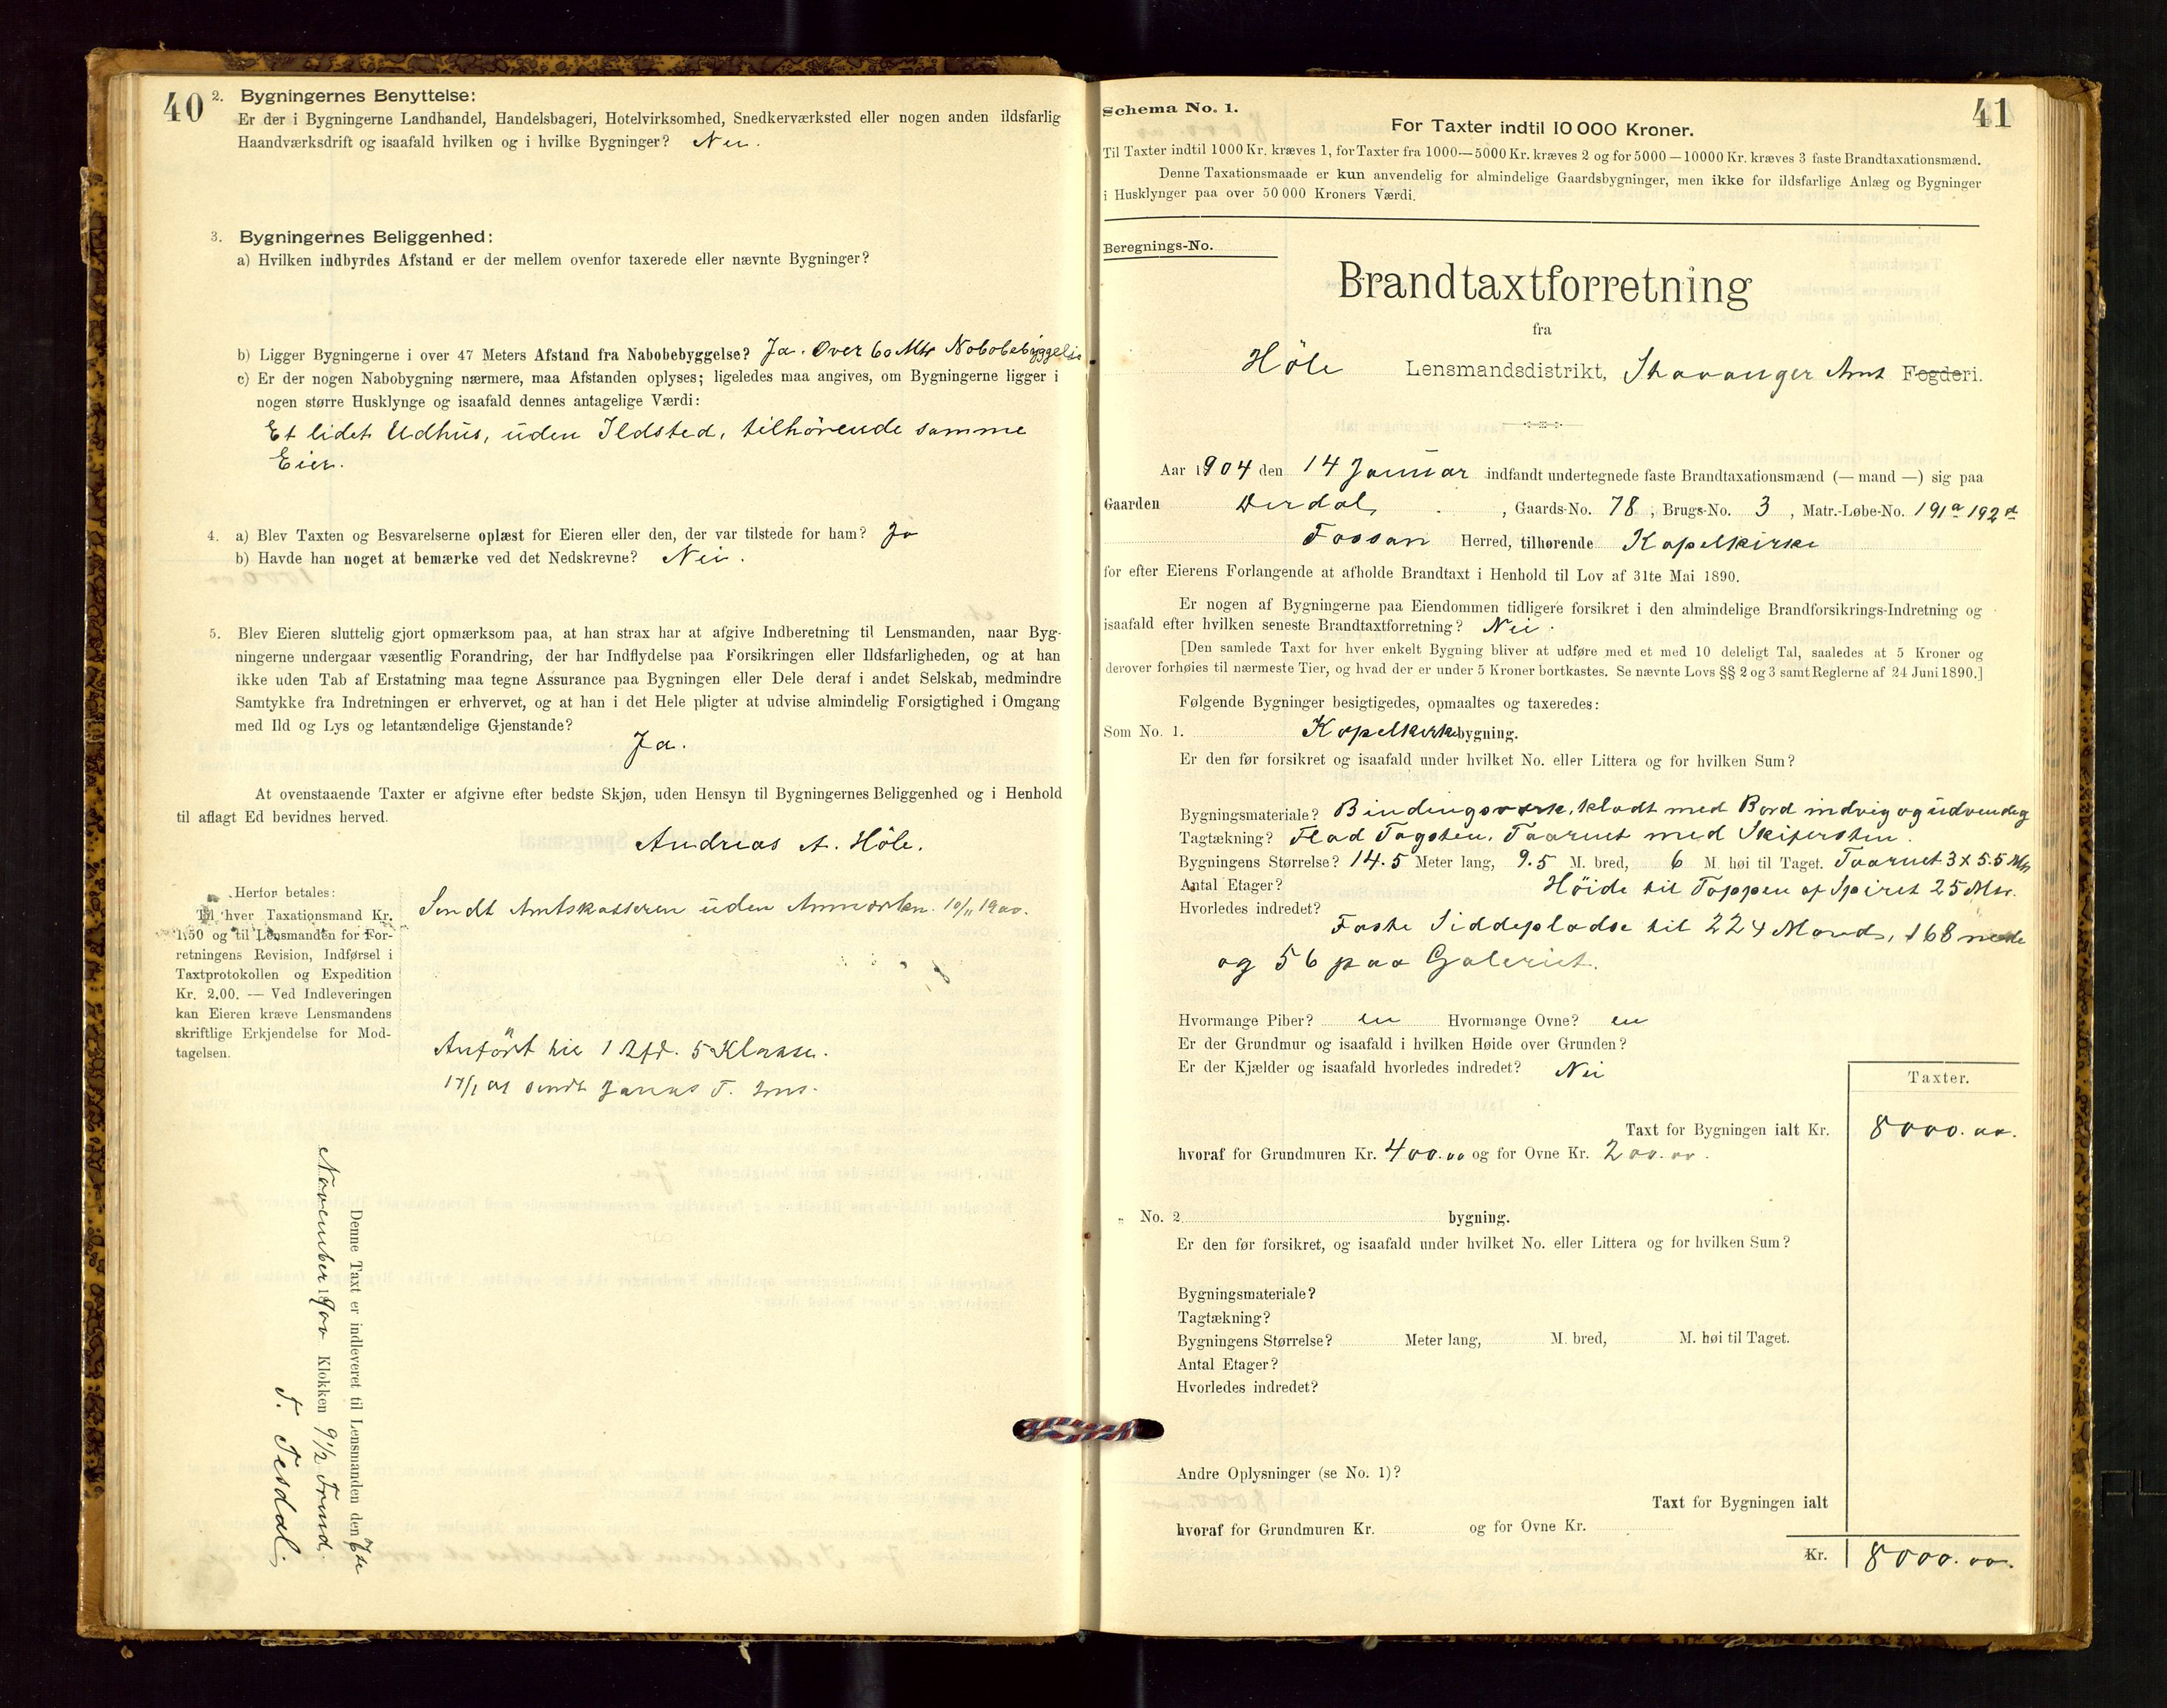 40
2. Bygningernes Benyttelse:
Er der i Bygningerne Landhandel, Handelsbageri, Hotelvirksomhed, Snedkerværksted eller nogen anden ildsfarlig
Haandværksdrift og isaafald hvilken og i hvilke Bygninger? Nei.
3. Bygningernes Beliggenhed:
a) Hvilken indbyrdes Afstand er der mellem ovenfor taxerede eller nævnte Bygninger?
b) Ligger Bygningerne i over 47 Meters Afstand fra Nabobebyggelse? Ja. Over 60 Mtr Nabobebyggelse
c) Er der nogen Nabobygning nærmere, maa Afstanden oplyses; ligeledes maa angives, om Bygningerne ligger i
nogen større Husklynge og isaafald dennes antagelige Værdi:
Et lidet Udhus, uden Ildsted, tilhörende samme
Eier.
4. a) Blev Taxten og Besvarelserne oplæst for Eieren eller den, der var tilstede for ham? Ja
b) Havde han noget at bemærke ved det Nedskrevne? Nei.
5. Blev Eieren sluttelig gjort opmærksom paa, at han strax har at afgive Indberetning til Lensmanden, naar Byg-
ningerne undergaar væsentlig Forandring, der har Indflydelse paa Forsikringen eller Ildsfarligheden, og at han
ikke uden Tab af Erstatning maa tegne Assurance paa Bygningen eller Dele deraf i andet Selskab, medmindre
Samtykke fra Indretningen er erhvervet, og at han i det Hele pligter at udvise almindelig Forsigtighed i Omgang
med Ild og Lys og letantændelige Gjenstande?
Ja.
At ovenstaaende Taxter er afgivne efter bedste Skjøn, uden Hensyn til Bygningernes Beliggenhed og i Henhold
til aflagt Ed bevidnes herved.
Andreas A. Höle.
Herfor betales:
Til hver Taxationsmand Kr.
1.50 og til Lensmanden for For-
retningens Revision, Indførsel i
Taxtprotokollen og Expedition
Kr. 2.00. — Ved Indleveringen
kan Eieren kræve Lensmandens
skriftlige Erkjendelse for Mod-
tagelsen.
Sendt Amtskasseren uden Anmærkn. 10/11 1900.
Anfört her 1 5 Klasse.
17/1 01 sendt
Denne Taxt er indleveret til Lensmanden den 7de
November 1900 Klokken 9½ Formd.
T. Tesdal.
41
Schema No. 1.
For Taxter indtil 10 000 Kroner.
Til Taxter indtil 1000 Kr. kræves 1, for Taxter fra 1000—5000 Kr. kræves 2 og for 5000—10000 Kr. kræves 3 faste Brandtaxationsmænd.
Denne Taxationsmaade er kun anvendelig for almindelige Gaardsbygninger, men ikke for ildsfarlige Anlæg og Bygninger
i Husklynger paa over 50 000 Kroners Værdi.
Beregnings-No.
Brandtaxtforretning
fra
Höle Lensmandsdistrikt, Stavanger Amt Fogderi.
Aar 1904 den 14 Januar indfandt undertegnede faste Brandtaxationsmænd (— mand —) sig paa
Gaarden Dirdal, Gaards-No. 78, Brugs-No. 3, Matr.-Løbe-No. 191a 192d
Fossan Herred, tilhørende Kapelkirke
for efter Eierens Forlangende at afholde Brandtaxt i Henhold til Lov af 31te Mai 1890.
Er nogen af Bygningerne paa Eiendommen tidligere forsikret i den almindelige Brandforsikrings-Indretning og
isaafald efter hvilken seneste Brandtaxtforretning? Nei.
[Den samlede Taxt for hver enkelt Bygning bliver at udføre med et med 10 deleligt Tal, saaledes at 5 Kroner og
derover forhøies til nærmeste Tier, og hvad der er under 5 Kroner bortkastes. Se nævnte Lovs §§ 2 og 3 samt Reglerne af 24 Juni 1890.]
Følgende Bygninger besigtigedes, opmaaltes og taxeredes:
Som No. 1. Kapelkirkebygning.
Er den før forsikret og isaafald under hvilket No. eller Littera og for hvilken Sum?
Bygningsmateriale? Bindingsværk, klædt med Bord indvig og udvendig
Tagtækning? Flad Tagsten. Taarnet med Skifersten.
Bygningens Størrelse? 14.5 Meter lang, 9.5 M. bred, 6 M. høi til Taget. Taarnet 3 x 5.5 Mtr
Antal Etager? Höide til Toppen af Spiret 25 Mtr.
Hvorledes indredet?
Faste Siddepladse til 224 Mand, 168 nede
og 56 paa Galeriet.
Hvormange Piber? en Hvormange Ovne? en
Er der Grundmur og isaafald i hvilken Høide over Grunden?
Er der Kjælder og isaafald hvorledes indredet? Nei
Taxter.
Taxt for Bygningen ialt Kr. 8000.00.
hvoraf for Grundmuren Kr. 400.00 og for Ovne Kr. 200.00.
„ No. 2 bygning.
Er den før forsikret, og isaafald under hvilket No. eller Littera og for hvilken Sum?
Bygningsmateriale?
Tagtækning?
Bygningens Størrelse? Meter lang, M. bred, M. høi til Taget.
Antal Etager?
Hvorledes indredet?
Andre Oplysninger (se No. 1)?
Taxt for Bygningen ialt
hvoraf for Grundmuren Kr. og for Ovne Kr.
Kr. 8000.00.